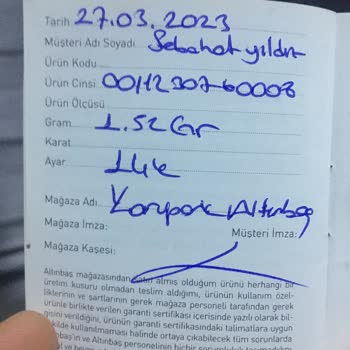 Tarih 27.03.2023
Müşteri Adı Soyadı Sebahat yıldız
Ürün Kodu
Ürün Cinsi 0011230760008
Ürün Ölçüsü
Gram 1.52 Gr
Karat
Ayar 14k
Mağaza Adı Altınbaş
Mağaza İmza: Müşteri İmza:
Mağaza Kaşesi:
Altınbaş mağazasından satın almış olduğum ürünü herhangi bir
üretim kusuru olmadan teslim aldığımı, ürünün kullanım özel-
liklerinin ve şartlarının gerek mağaza personeli tarafından gerek
ürünle birlikte verilen garanti sertifikası içerisinde yazılı olarak bil-
gisini verildiğini, ürünün garanti sertifikasındaki talimatlara uygun
şekilde kullanılmaması halinde ortaya çıkabilecek tüm sorunlarda
Altınbaş'ın ve Altınbaş personelinin hiçbir